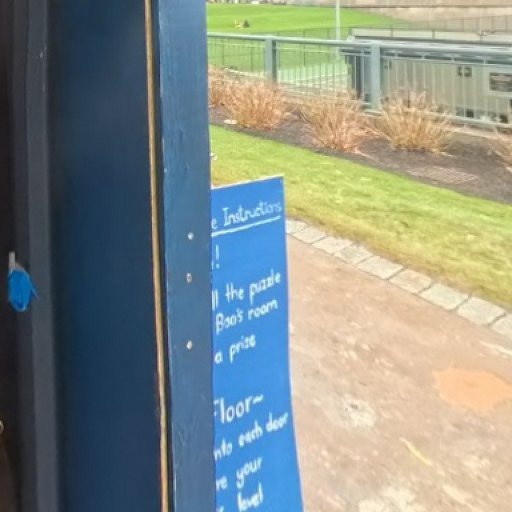 e Instructions
!
ll the puzzle
Boo's room
a prize
Floor~
nto each door
re your
level